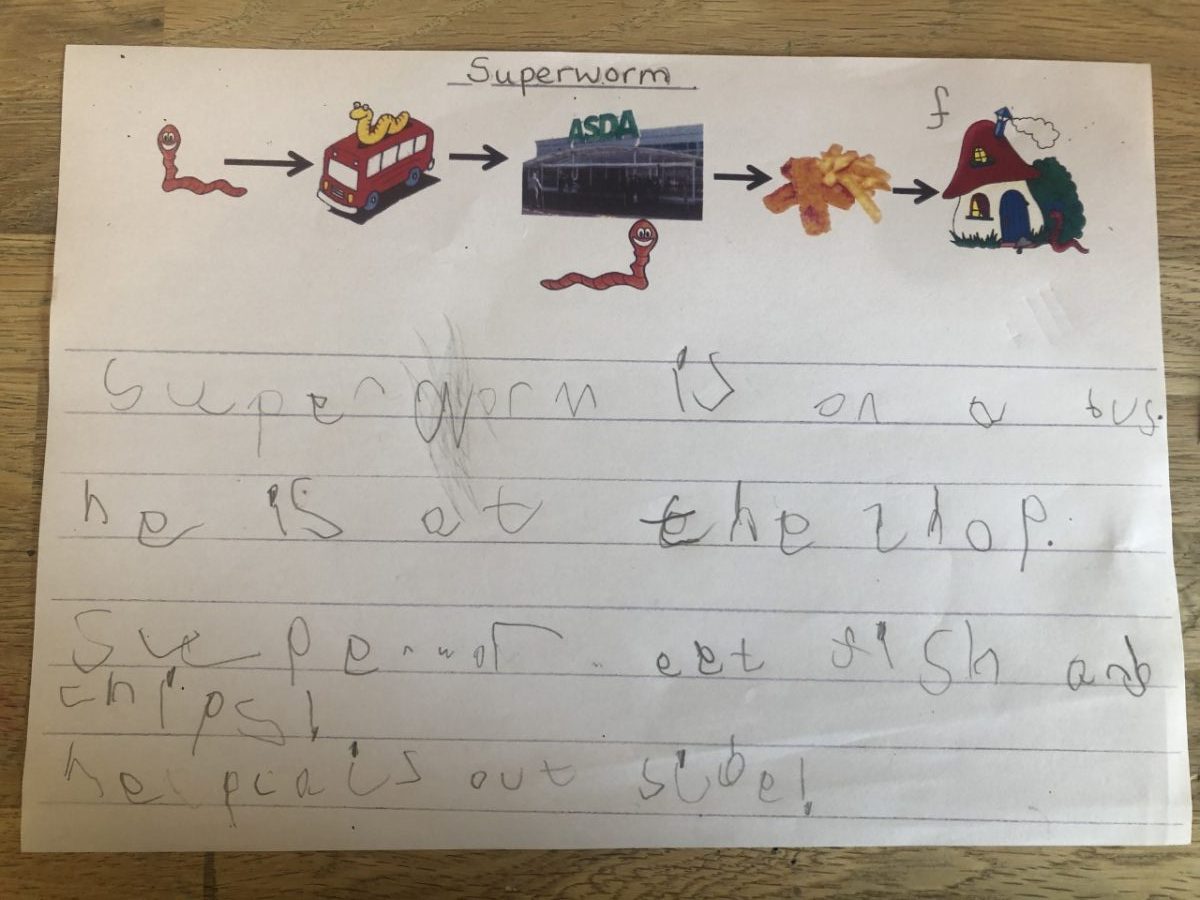 Superworm
ASDA
f
Superworm is on a bus.
he is at the shop.
Superwor eet fish and
chips!
he is out side!